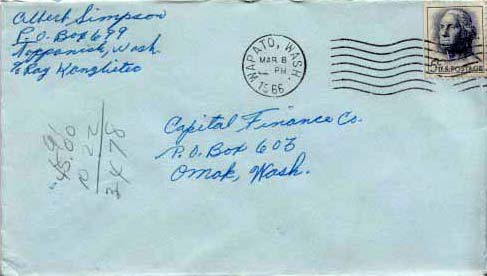 Albert Simpson
P.O. Box 699
Toppenish, Wash.
WAPATO, WASH.
MAR 8
PM
1966
5¢ U.S. POSTAGE
Capital Finance Co.
P.O. Box 603
Omak, Wash.
45.00
10 22
34 78